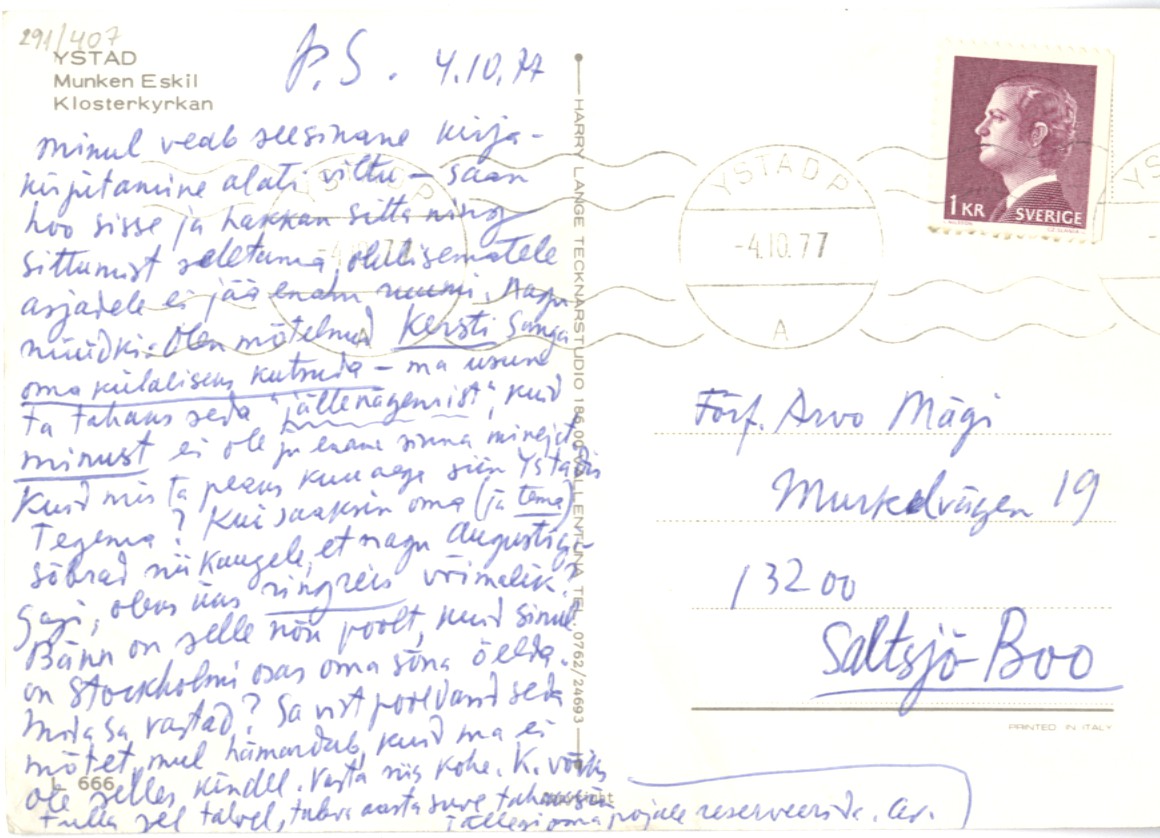 291/407
YSTAD
Munken Eskil
Klosterkyrkan
P.S. 4.10.77
minul veab seesinane kirja-
kirjutamine alati viltu – saan
hoo sisse ja hakkan sitta ning
sittumist seletama, olulisematele
asjadele ei jää enam ruumi. Nagu
nüüdki: Olen mõtelnud Kersti
oma külaliseks kutsuda – ma usun
ta tahaks seda "jällenägemist", kuid
minust ei ole ju enam sinna minejat.
Kuid mis ta peaks kuu aega siin Ystadis
Tegema? Kui saaksin oma (ja tema)
sõbrad niikaugele, et nagu Augusti
oleks üks ringreis võimalik?
Bänn on selle nõu poolt, kuid sinul
on Stockholmi osas oma sõna öelda.
Mida sa vastad? Sa vist pooldasid seda
mõtet, mul hämardub, kuid ma ei
ole selles kindel. Vasta siis kohe. K. võiks
tulla sel talvel, tuleva aasta suve tahan siin
jällegi oma pojale reserveerida. Av.
L 666
HARRY LANGE TECKNARSTUDIO 186 00 VALLENTUNA TEL. 0762/24693
YSTAD P
-4.10.77
A
1 KR SVERIGE
Förf. Arvo Mägi
Murkelvägen 19
132 00
Saltsjö-Boo
PRINTED IN ITALY